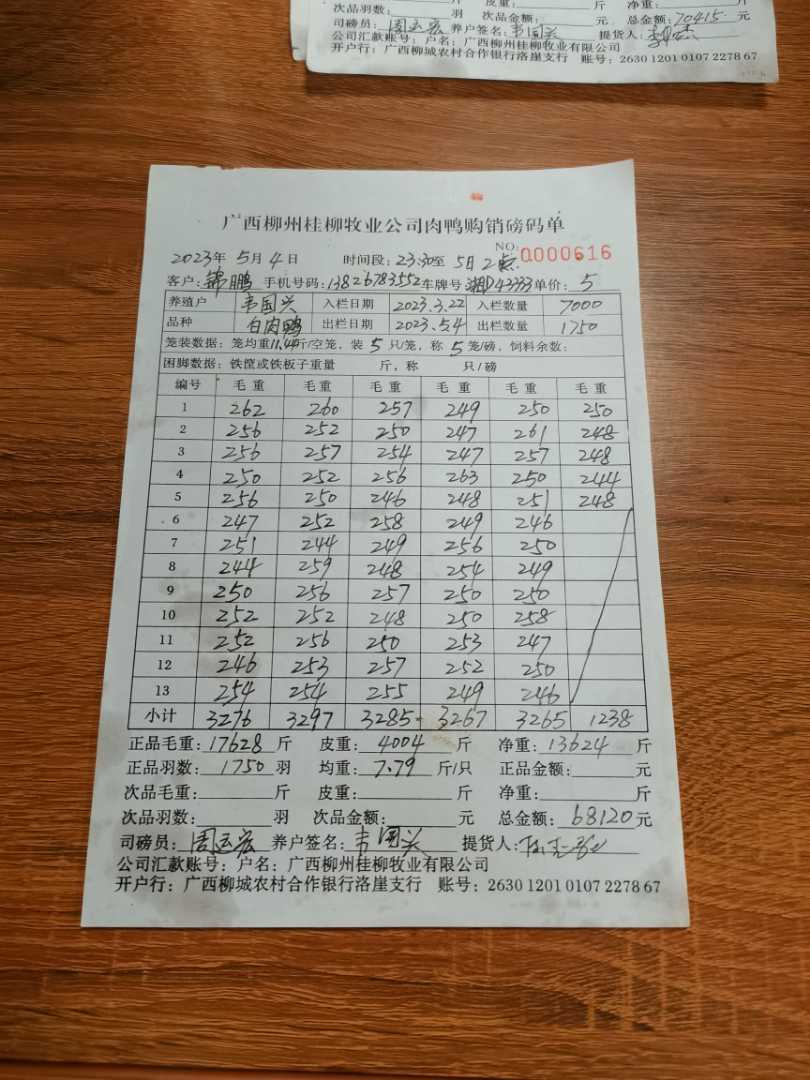 次品羽数： 羽 次品金额： 元 总金额：70415 元
司磅员： 养户签名：韦国兴 提货人：
公司汇款账号：户名：广西柳州桂柳牧业有限公司
开户行：广西柳城农村合作银行洛崖支行 账号：2630 1201 0107 2278 67
广西柳州桂柳牧业公司肉鸭购销磅码单
NO：0000616
2023年 5月 4日 时间段：23:30至 5日2点
客户：锦鹏 手机号码：13826783552 车牌号 湘D43333 单价：5
养殖户 韦国兴 入栏日期 2023.3.22 入栏数量 7000
品种 白肉鸭 出栏日期 2023.5.4 出栏数量 1750
笼装数据：笼均重11.44斤/空笼，装 5 只/笼，称 5 笼/磅，饲料余数：
困脚数据：铁筐或铁板子重量 斤，称 只/磅
编号 毛重 毛重 毛重 毛重 毛重 毛重
1 262 260 257 249 250 250
2 256 252 250 247 261 248
3 256 257 254 247 257 248
4 250 252 256 263 250 244
5 256 250 246 248 251 248
6 247 252 258 249 246
7 251 244 249 256 250
8 244 259 248 254 249
9 250 256 257 250 250
10 252 252 248 250 258
11 252 256 250 253 247
12 246 253 257 252 250
13 254 254 255 249 246
小计 3276 3297 3285 3267 3265 1238
正品毛重：17628 斤 皮重：4004 斤 净重：13624 斤
正品羽数：1750 羽 均重：7.79 斤/只 正品金额： 元
次品毛重： 斤 皮重： 斤 净重： 斤
次品羽数： 羽 次品金额： 元 总金额：68120元
司磅员： 养户签名：韦国兴 提货人：
公司汇款账号：户名：广西柳州桂柳牧业有限公司
开户行：广西柳城农村合作银行洛崖支行 账号：2630 1201 0107 2278 67